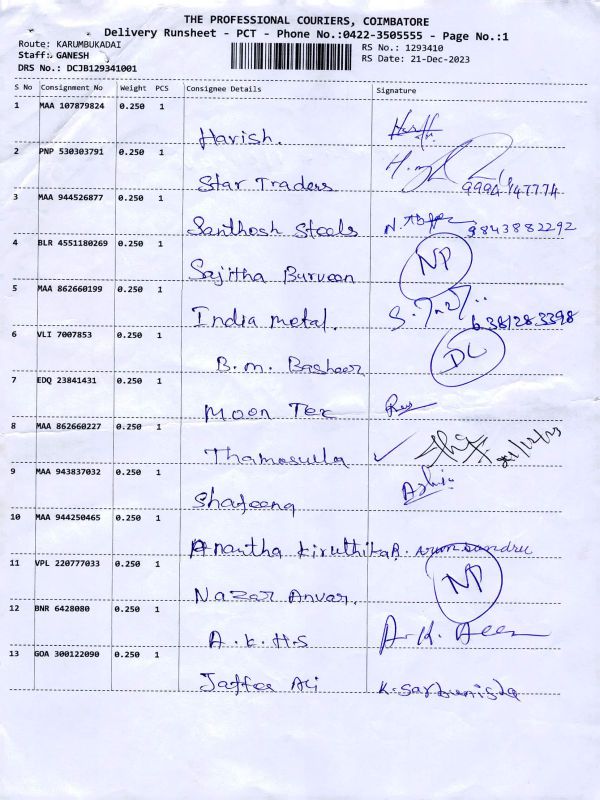 THE PROFESSIONAL COURIERS, COIMBATORE
Delivery Runsheet - PCT - Phone No.:0422-3505555 - Page No.:1
Route: KARUMBUKADAI
RS No.: 1293410
Staff: GANESH
RS Date: 21-Dec-2023
DRS No.: DCJB129341001
S No Consignment No Weight PCS Consignee Details Signature
1 MAA 107879824 0.250 1
Harish.
2 PNP 530303791 0.250 1
Star Traders 9994147774
3 MAA 944526877 0.250 1
Santhosh Steels 9843882292
4 BLR 4551180269 0.250 1
Sajitha Burveen NP
5 MAA 862660199 0.250 1
India metal. 6381283398
6 VLI 7007853 0.250 1
B.m. Basheer DL
7 EDQ 23841431 0.250 1
Moon Tex
8 MAA 862660227 0.250 1
Thamasulla 21/12/23
9 MAA 943837032 0.250 1
Shafeena
10 MAA 944250465 0.250 1
Anantha Kiruthika
11 VPL 220777033 0.250 1
Nazar Anvar. NP
12 BNR 6428080 0.250 1
A.K.H.S
13 GOA 300122090 0.250 1
Jaffer Ali K. Sarbunisha